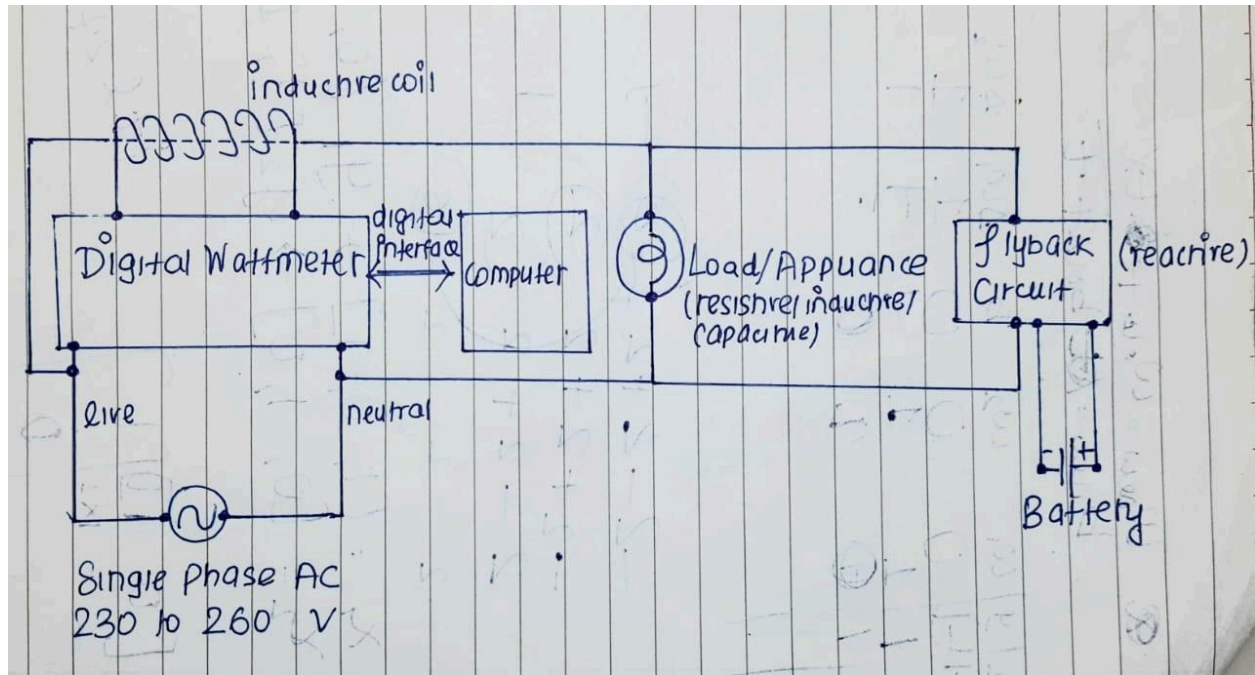 inductive coil
Digital Wattmeter
digital
interface
Computer
Load/Appliance
(resistive/inductive/
capacitive)
flyback
Circuit
(reactive)
live
neutral
- +
Battery
Single Phase AC
230 to 260 V